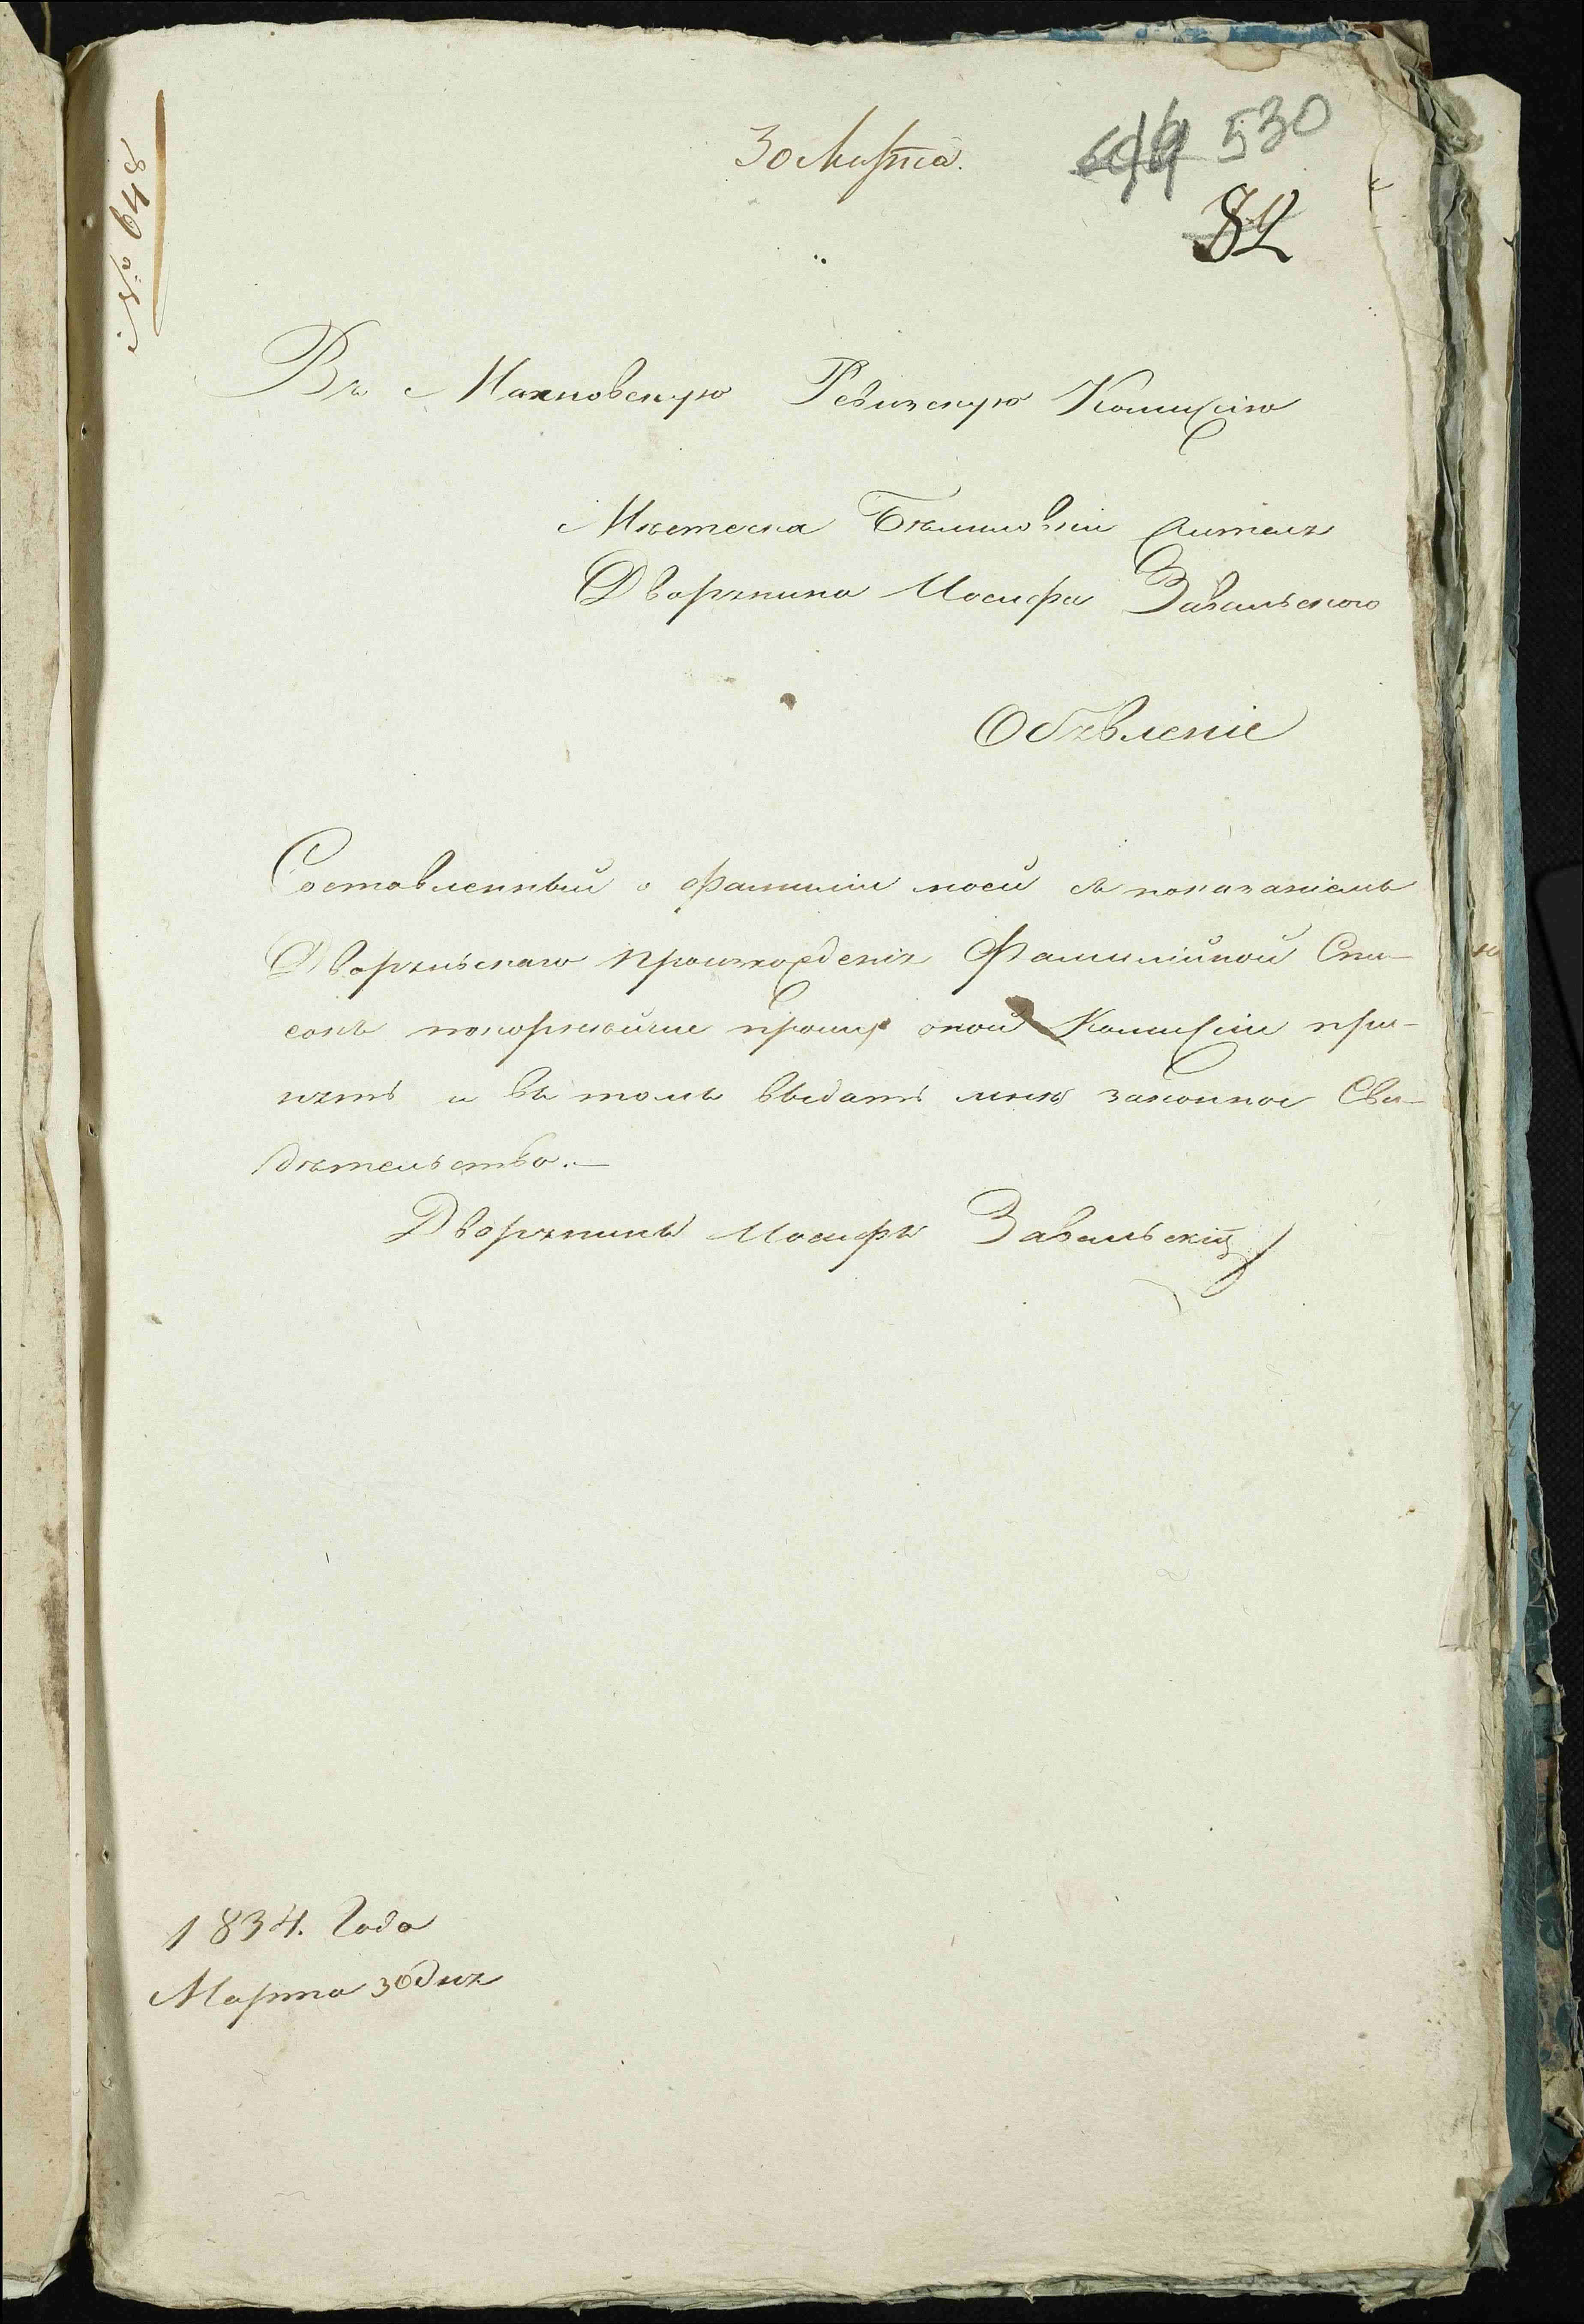 № 648
30 Марта.
530
82
Въ Махновскую Ревизскую Комисію
Мѣстечка Бѣлиловки жителя
Дворянина Иосифа Завальского
Объявленіе
Составленный о фамиліи моей съ показаніемъ
Дворянскаго произхожденія Фамилійной Спи-
сокъ покорнѣйше прошу оной Комисіи при-
нять и въ томъ выдать мнѣ законное Сви-
дѣтельство.—
Дворянинъ Иосифъ Завальскій
1834. Года
Марта 30 дня